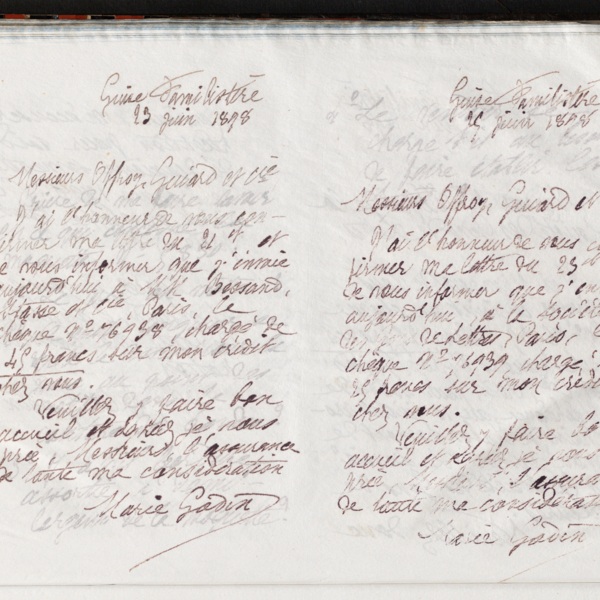 Guise Familistère
23 juin 1898
Messieurs Offroy, Guiard et Cie
J'ai l'honneur de vous con-
firmer ma lettre du 21 ct et
de vous informer que j'envoie
aujourd'hui à MM. Bossand,
et Cie, Paris, le
chèque n° 76938, chargé de
45 francs sur mon crédit
chez vous.
Veuillez y faire bon
accueil et donnez je vous
prie, Messieurs, l'assurance
de toute ma considération
Marie Godin
Guise Familistère
25 juin 1898
Messieurs Offroy, Guiard et
J'ai l'honneur de vous
firmer ma lettre du 23
de vous informer que j'en
aujourd'hui, à la Société
des gens de lettres, Paris,
chèque n° 76939, chargé
25 francs sur mon créd
chez vous.
Veuillez y faire bo
accueil et je vous
prie l'assura
de toute ma considérat
Marie Godin